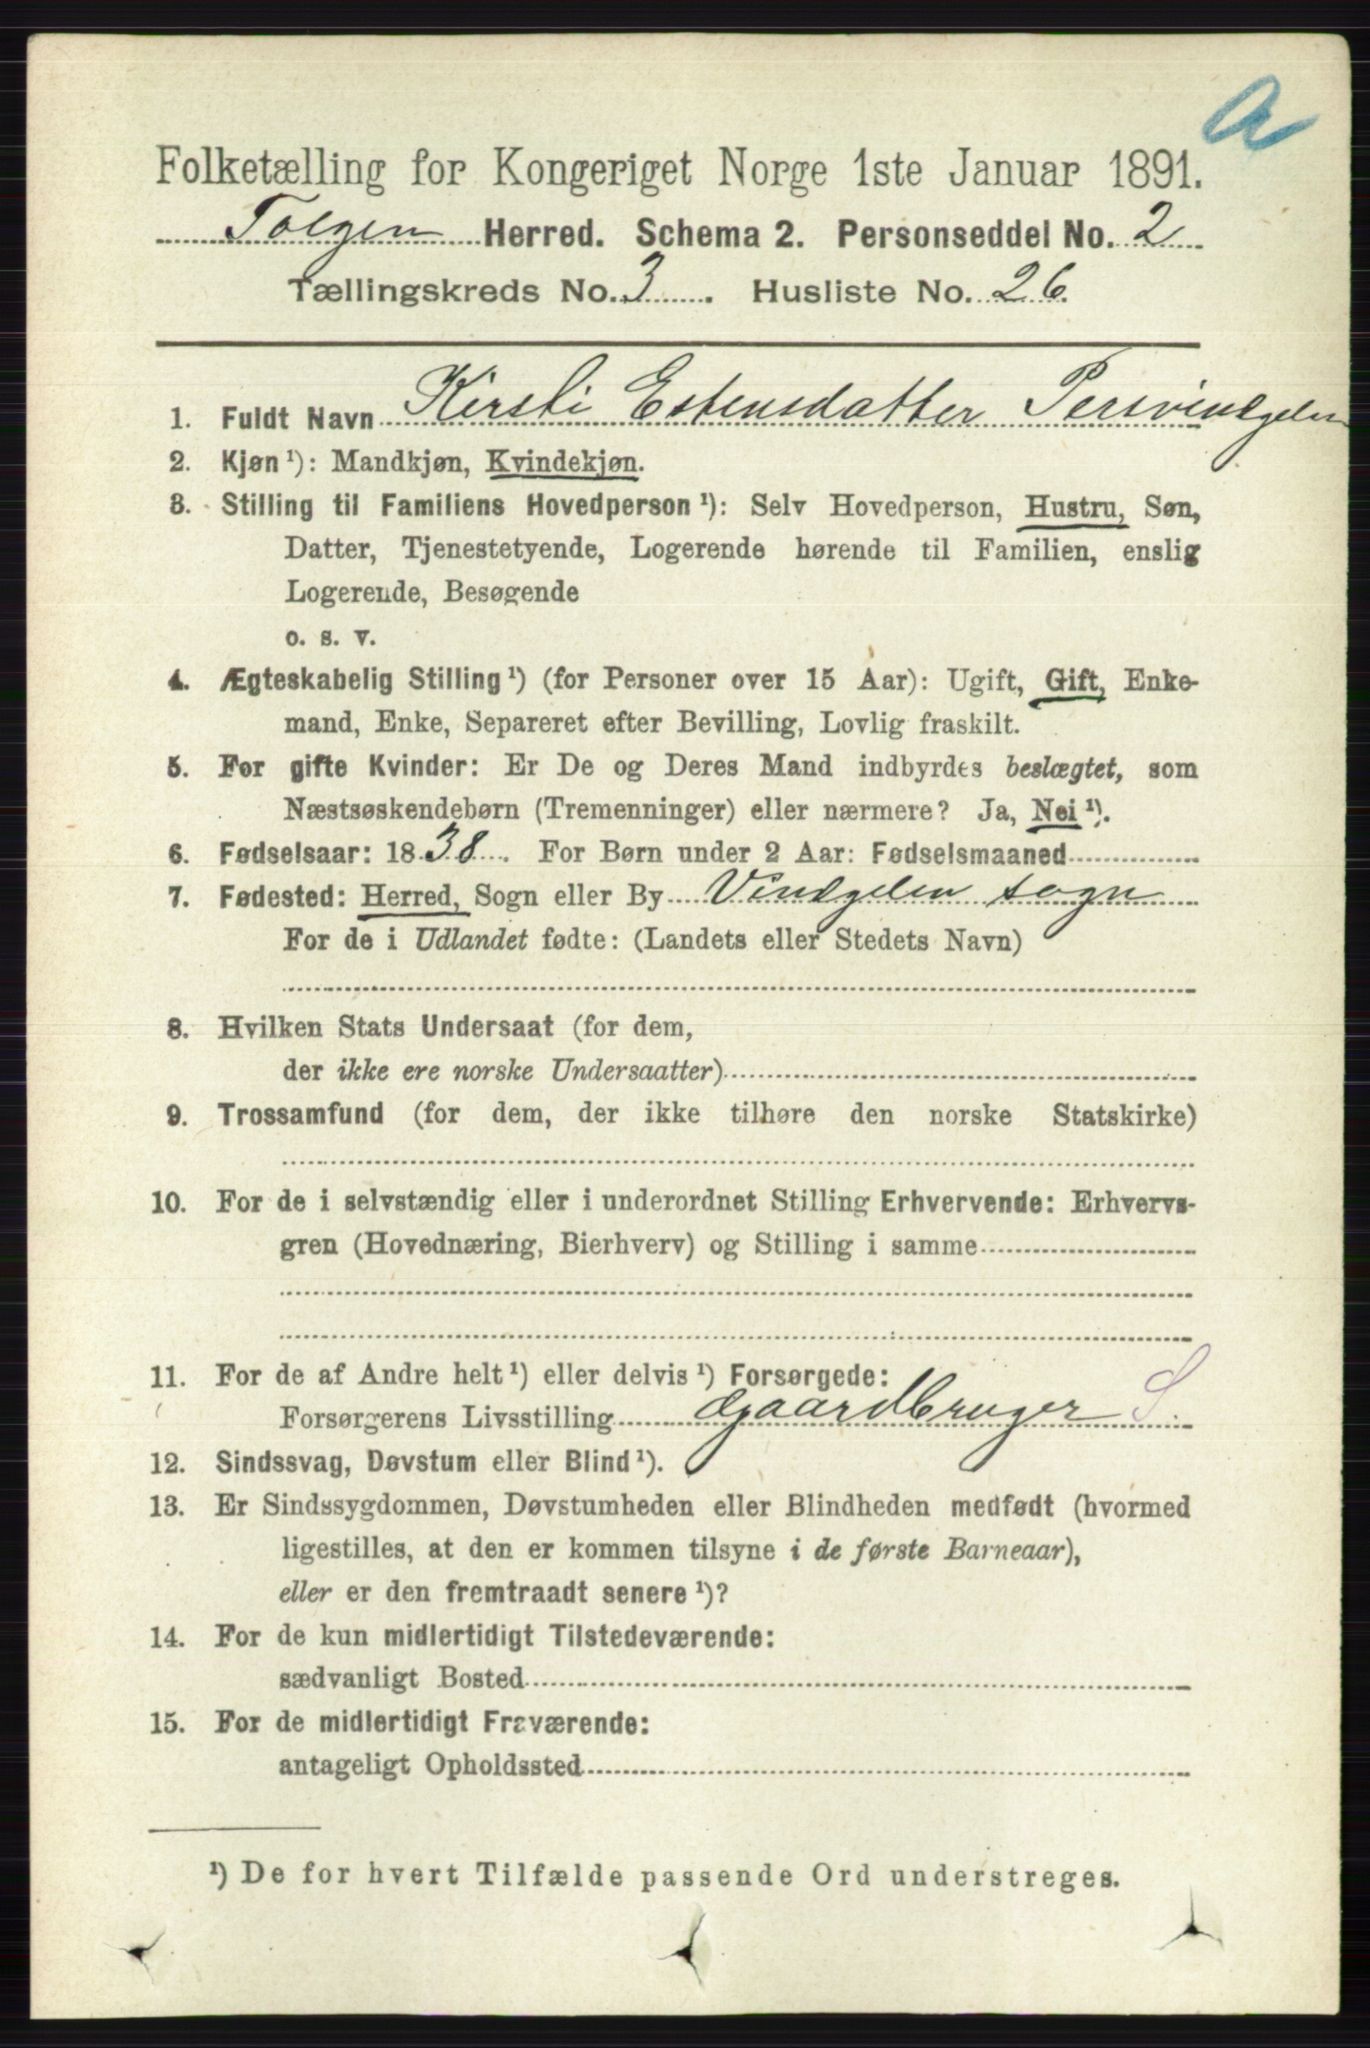 a
Folketælling for Kongeriget Norge 1ste Januar 1891.
Tolgen Herred. Schema 2. Personseddel No. 2
Tællingskreds No. 3. Husliste No. 26.
1. Fuldt Navn Kirsti Estensdatter Persvingelen
2. Kjøn¹): Mandkjøn, Kvindekjøn.
3. Stilling til Familiens Hovedperson¹): Selv Hovedperson, Hustru, Søn,
Datter, Tjenestetyende, Logerende hørende til Familien, enslig
Logerende, Besøgende
o. s. v.
4. Ægteskabelig Stilling¹) (for Personer over 15 Aar): Ugift, Gift, Enke-
mand, Enke, Separeret efter Bevilling, Lovlig fraskilt.
5. For gifte Kvinder: Er De og Deres Mand indbyrdes beslægtet, som
Næstsøskendebørn (Tremenninger) eller nærmere? Ja, Nei¹).
6. Fødselsaar: 1838. For Børn under 2 Aar: Fødselsmaaned
7. Fødested: Herred, Sogn eller By Vingelen sogn
For de i Udlandet fødte: (Landets eller Stedets Navn)
8. Hvilken Stats Undersaat (for dem,
der ikke ere norske Undersaatter)
9. Trossamfund (for dem, der ikke tilhøre den norske Statskirke)
10. For de i selvstændig eller i underordnet Stilling Erhvervende: Erhvervs-
gren (Hovednæring, Bierhverv) og Stilling i samme
11. For de af Andre helt¹) eller delvis¹) Forsørgede:
Forsørgerens Livsstilling Gaardbruger S
12. Sindssvag, Døvstum eller Blind¹).
13. Er Sindssygdommen, Døvstumheden eller Blindheden medfødt (hvormed
ligestilles, at den er kommen tilsyne i de første Barneaar),
eller er den fremtraadt senere¹)?
14. For de kun midlertidigt Tilstedeværende:
sædvanligt Bosted
15. For de midlertidigt Fraværende:
antageligt Opholdssted
¹) De for hvert Tilfælde passende Ord understreges.